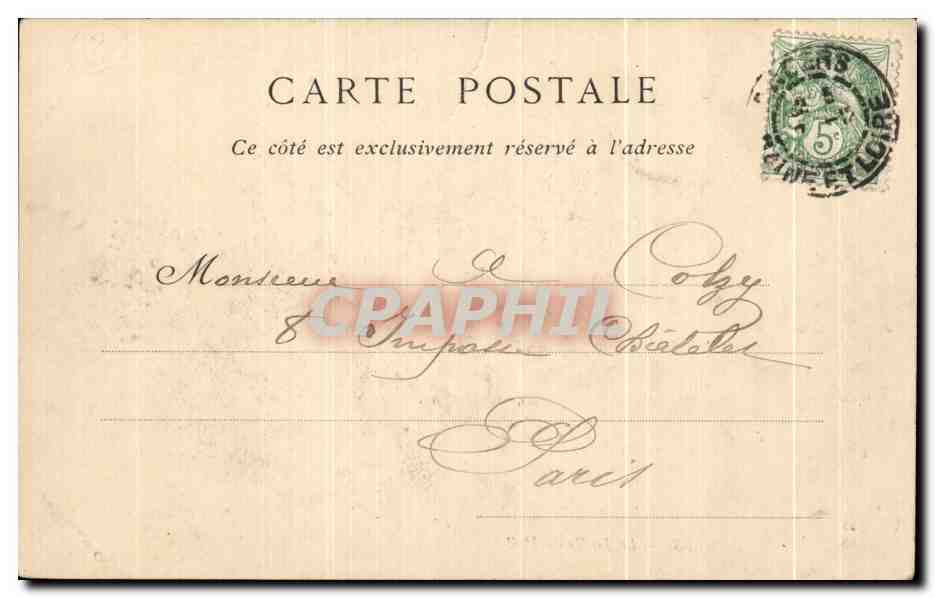 CARTE POSTALE
Ce côté est exclusivement réservé à l'adresse
5c
MAINE ET LOIRE
Monsieur
CPAPHIL
8 Impasse Châtelet
Paris